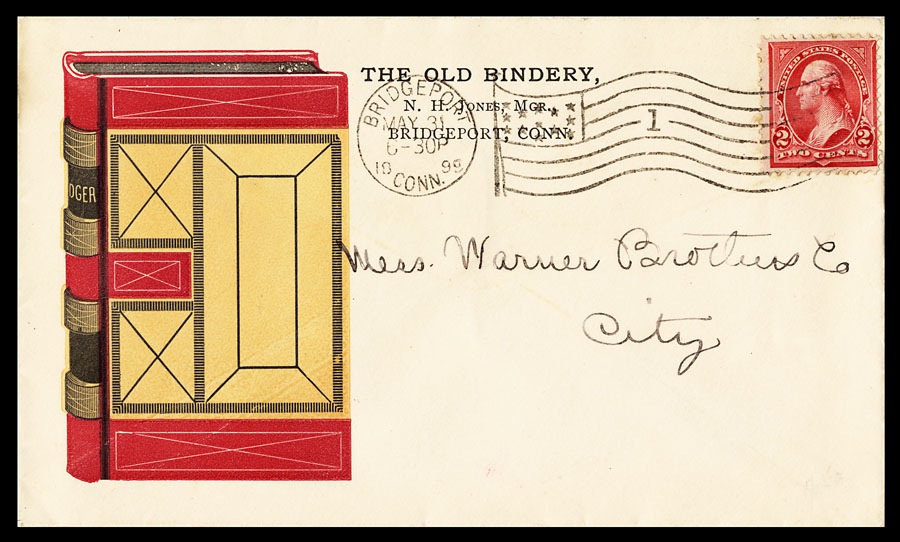 THE OLD BINDERY,
N. H. JONES, MGR.,
BRIDGEPORT, CONN.
BRIDGEPORT
MAY 31
6-30P
1899
CONN.
1
UNITED STATES POSTAGE
2 2
TWO CENTS
DGER
Mess. Warner Brothers Co
City